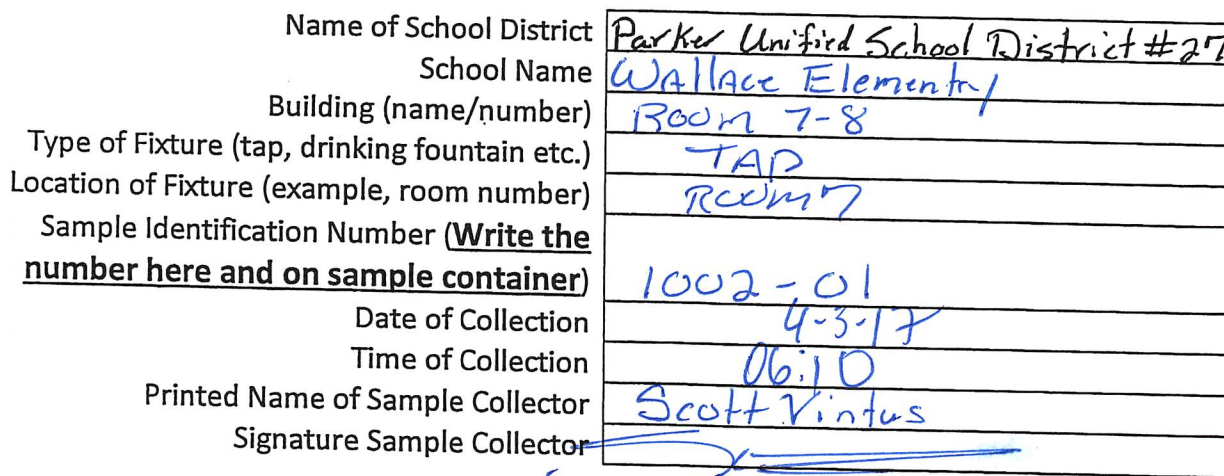 Name of School District Parker Unified School District #27
School Name Wallace Elementry
Building (name/number) Room 7-8
Type of Fixture (tap, drinking fountain etc.) TAP
Location of Fixture (example, room number) Room 7
Sample Identification Number (Write the
number here and on sample container) 1002-01
Date of Collection 4-3-17
Time of Collection 06:10
Printed Name of Sample Collector Scott Vintus
Signature Sample Collector